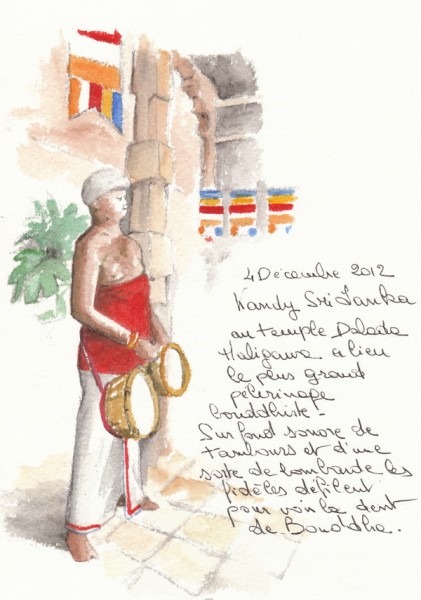 4 Décembre 2012
Kandy Sri Lanka
au temple Dalada
Maligawa a lieu
le plus grand
pélerinage
bouddhiste -
Sur fond sonore de
tambours et d'une
sorte de bombarde les
fidèles défilent
pour voir la dent
de Bouddha.